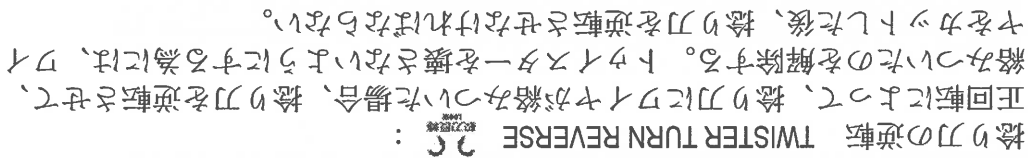 捻り刀の逆転　TWISTER TURN REVERSE　：
正回転によって、捻り刀にワイヤが絡みついた場合、捻り刀を逆転させて、
絡みついたのを解除する。トゥイスターを壊さないようにする為には、ワイ
ヤをカットした後、捻り刀を逆転させなければならない。